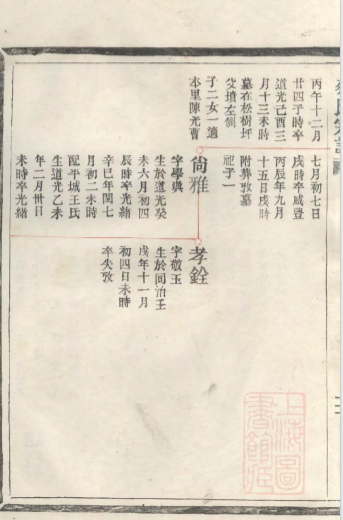 丙午十二月
廿四子時卒
道光己酉三
月十三未時
墓在松樹坪
父墳左側
子二女一適
本里陳光曹
七月初七日
戌時卒咸豐
丙辰年九月
十五日戌時
附葬敦墓
祀子一
尚雅
字學與
生於道光癸
未六月初四
辰時卒光緒
辛巳年閏七
月初二未時
配平城王氏
生道光乙未
年二月卅日
未時卒光緒
孝銓
字敬玉
生於同治壬
戌年十一月
初四日未時
卒失攷
上海圖
書館藏